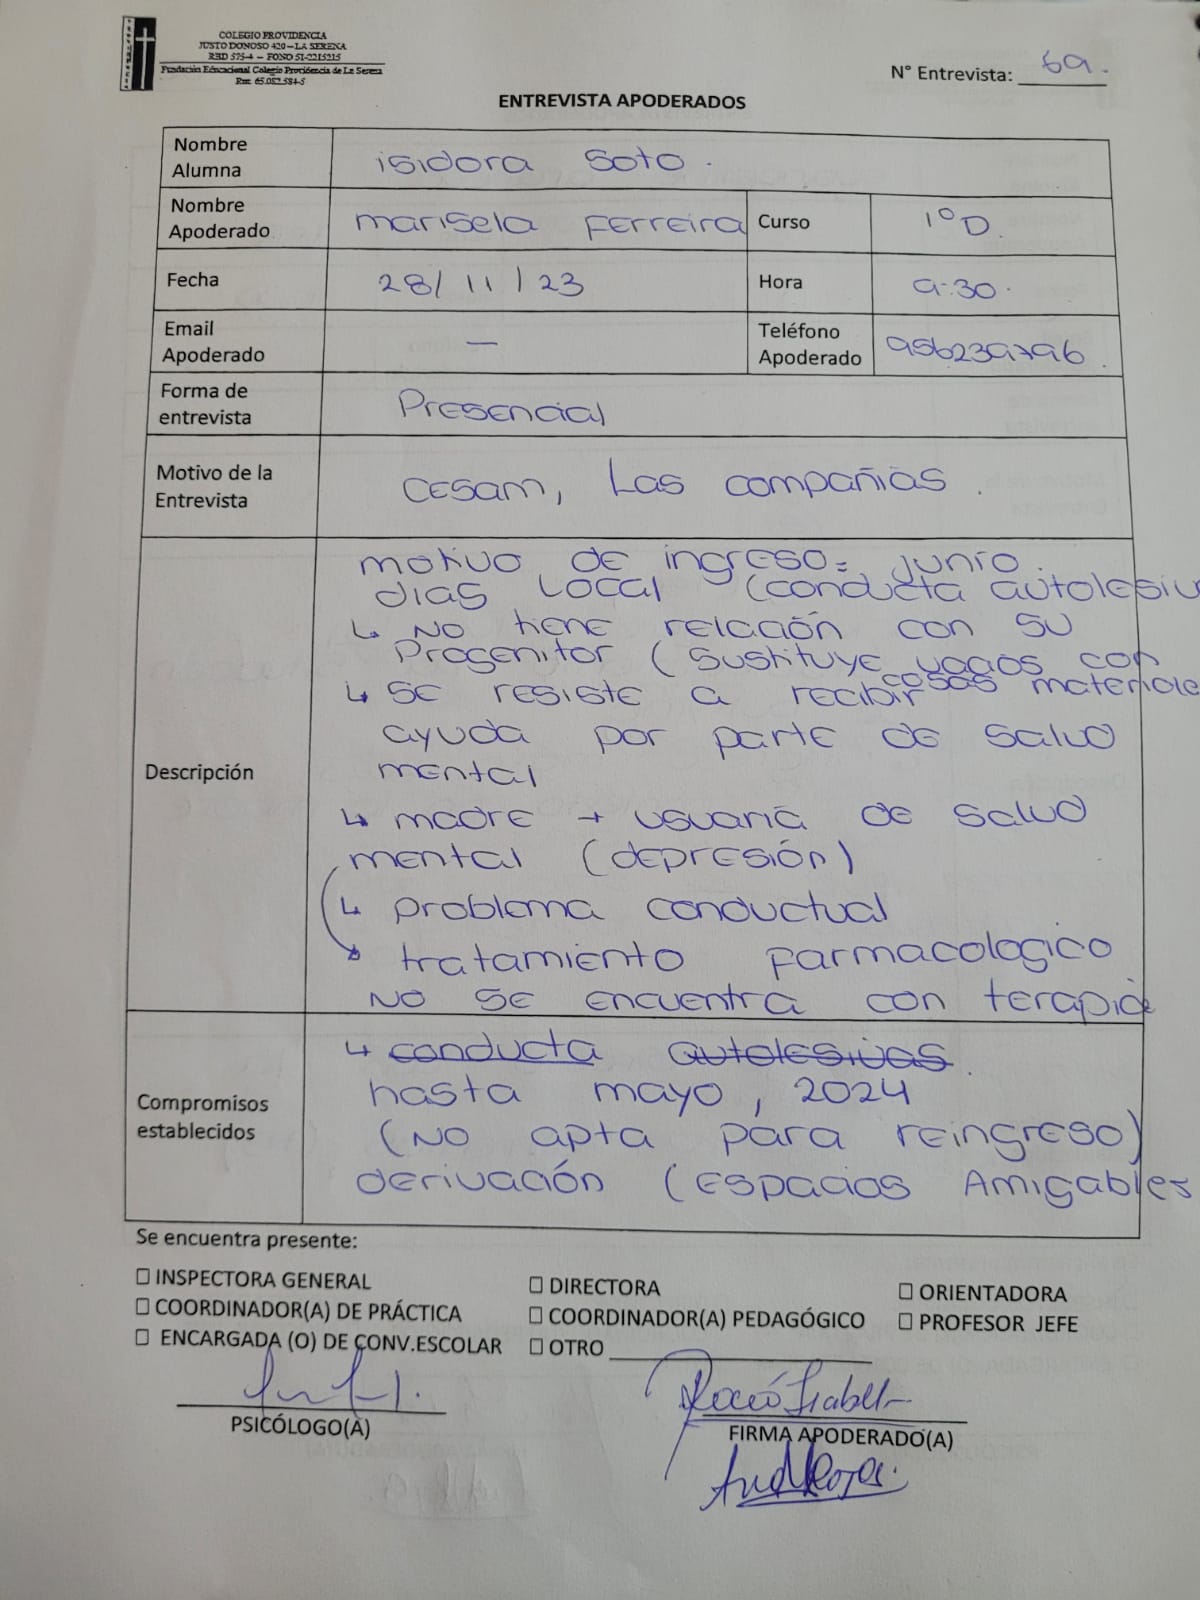 COLEGIO PROVIDENCIA
JUSTO DONOSO 420 – LA SERENA
RBD 575-4 – FONO 51-2215215
Fundación Educacional Colegio Providencia de La Serena
Rut: 65.082.584-5
N° Entrevista: 69.
ENTREVISTA APODERADOS
Nombre Alumna isidora Soto.
Nombre Apoderado marisela Ferreira Curso 1°D.
Fecha 28/11/23 Hora 9:30.
Email Apoderado — Teléfono Apoderado 956239796.
Forma de entrevista Presencial
Motivo de la Entrevista CESAM, Las compañías.
Descripción
motivo de ingreso= junio.
dias Local (conducta autolesiv
↳ No tiene relación con su
Progenitor (sustituye vacíos con
cosas materiale
↳ se resiste a recibir
ayuda por parte de salud
mental
↳ madre → usuaria de salud
mental (depresión)
↳ problema conductual
→ tratamiento farmacologico
NO SE encuentra con terapia
Compromisos establecidos
↳ conducta autolesivas.
hasta mayo, 2024
(No apta para reingreso)
derivación (Espacios Amigables
Se encuentra presente:
☐ INSPECTORA GENERAL ☐ DIRECTORA ☐ ORIENTADORA
☐ COORDINADOR(A) DE PRÁCTICA ☐ COORDINADOR(A) PEDAGÓGICO ☐ PROFESOR JEFE
☐ ENCARGADA (O) DE CONV.ESCOLAR ☐ OTRO
PSICÓLOGO(A) FIRMA APODERADO(A)